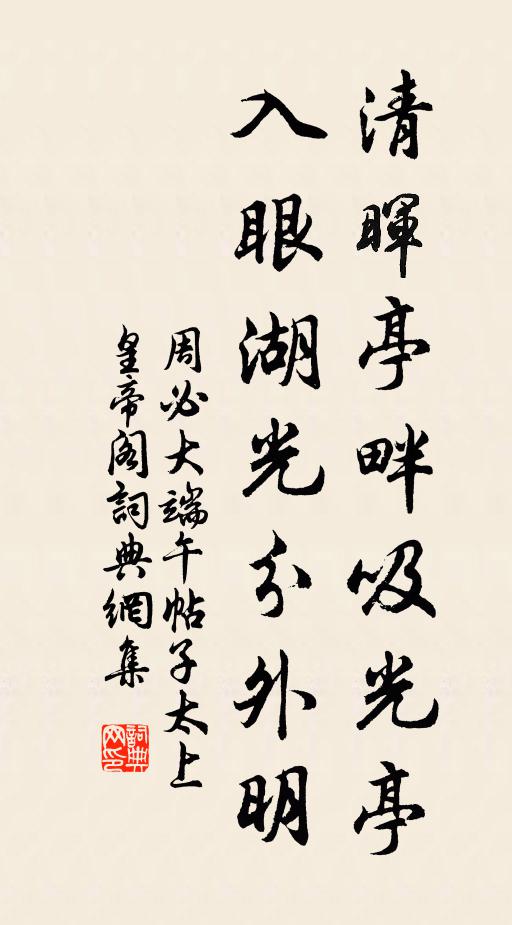 清暉亭畔吸光亭
入眼湖光分外明
周必大端午帖子太上
皇帝阁詞典網集
詞典网印